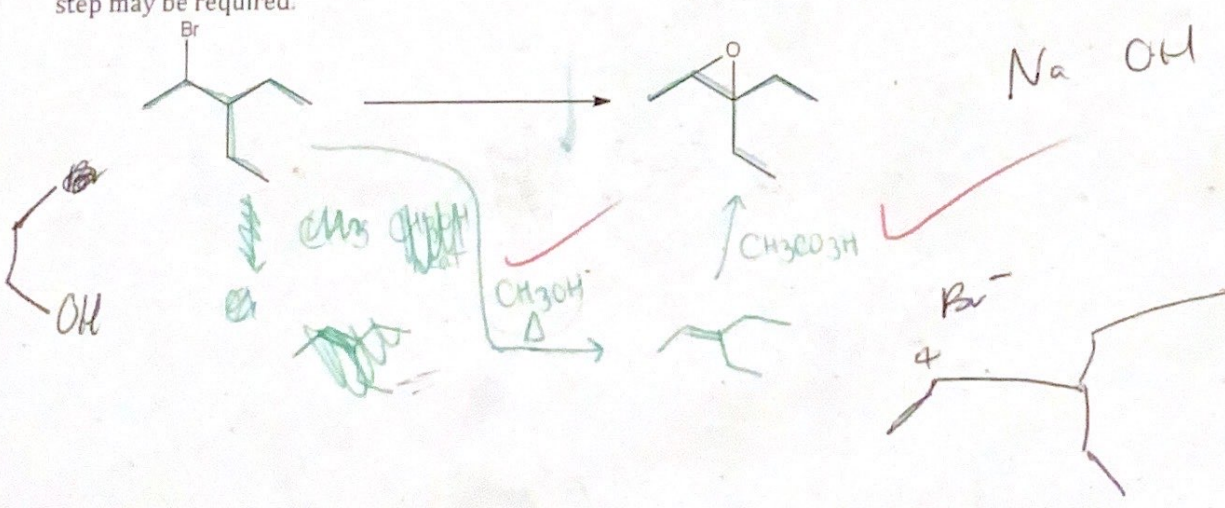 step may be required.
Br
O
Na OH
OH
CH3
CH3CO3H
CH3OH⁻
Δ
Br⁻
+